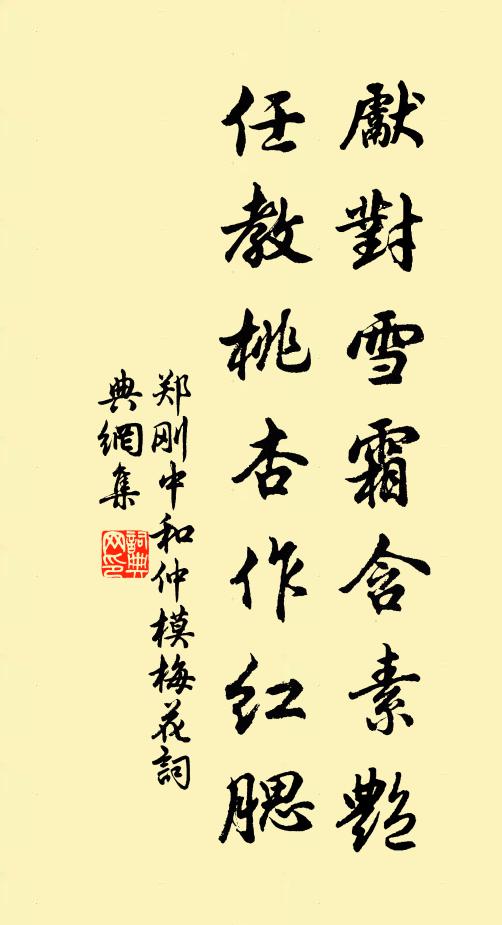 獻對雪霜含素艷
任教桃杏作红腮
郑刚中和仲模梅花詞
典網集
詞典
网印